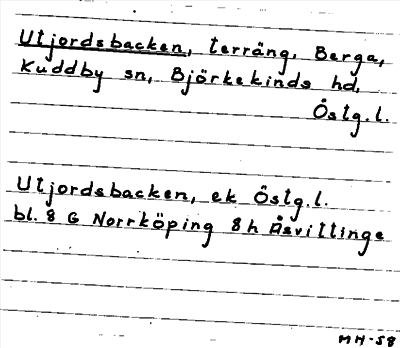 Utjordsbacken, terräng, Berga,
Kuddby sn, Björkekinds hd,
Östg.l.
Utjordsbacken, ek Östg.l.
bl. 8 G Norrköping 8 h Åsvittinge
MH-58